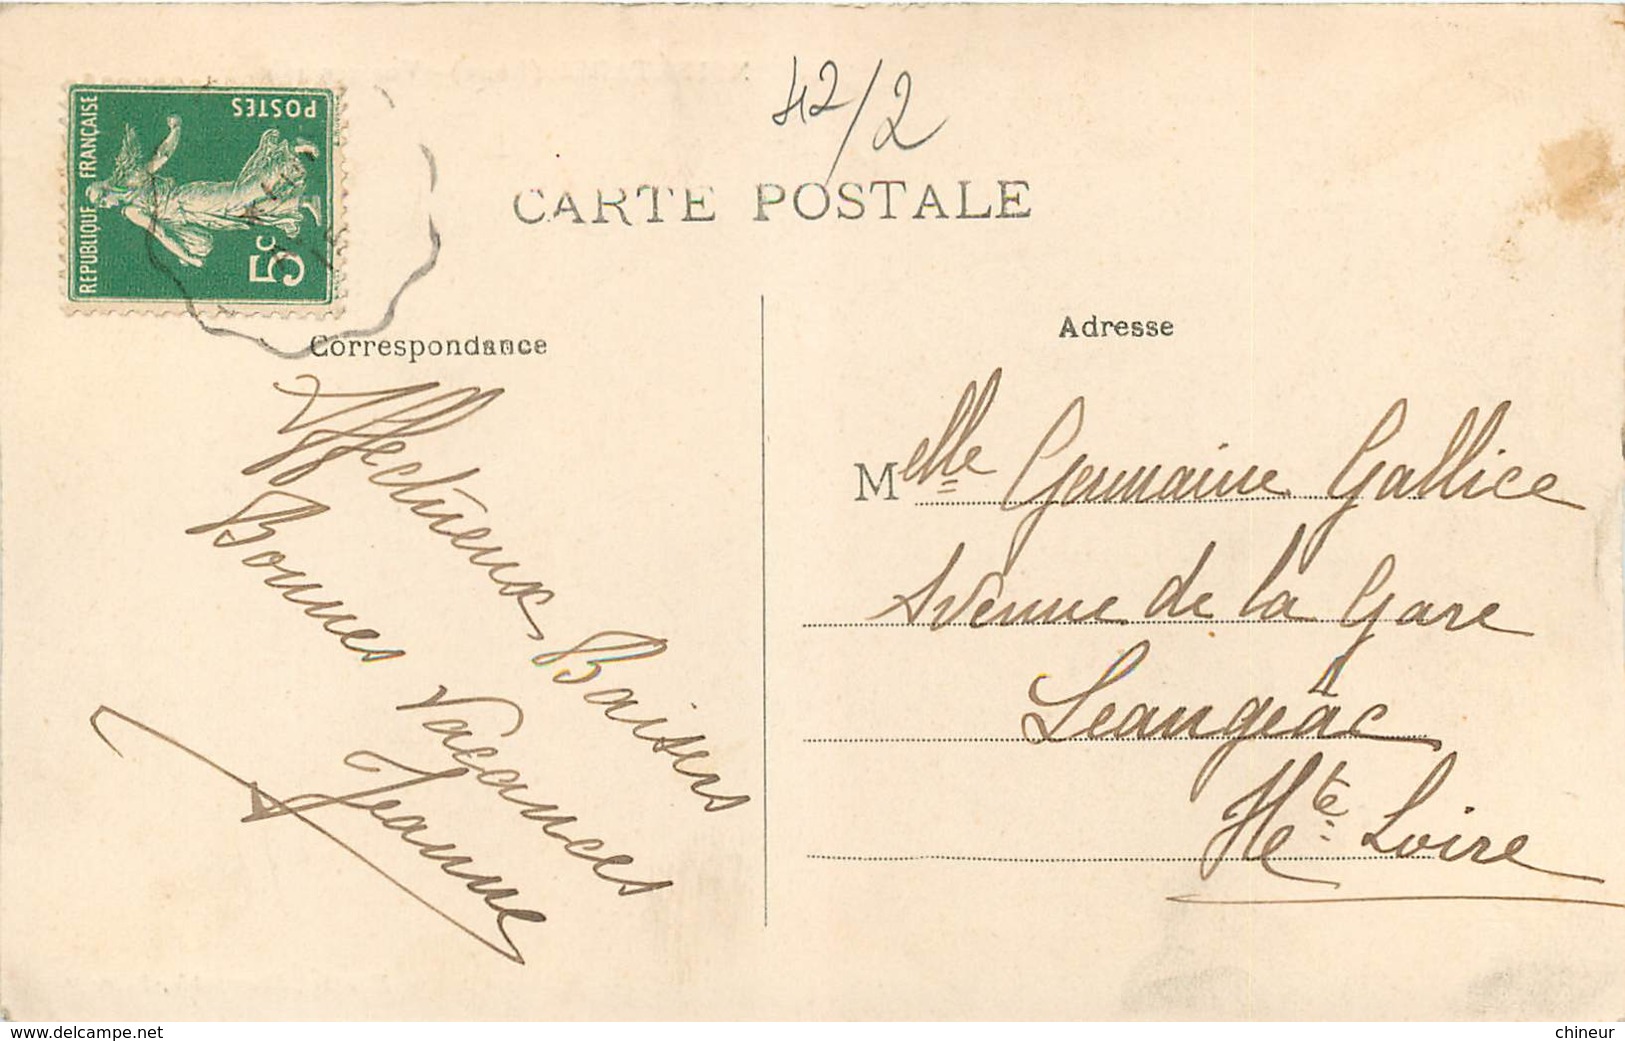 42/2
CARTE POSTALE
REPUBLIQUE FRANÇAISE
POSTES
5c
Correspondance
Affectueux Baisers
Bonnes Vacances
Jeanne
Adresse
Melle Germaine Gallice
Avenue de la Gare
Leangeac
Hte Loire
www.delcampe.net
chineur